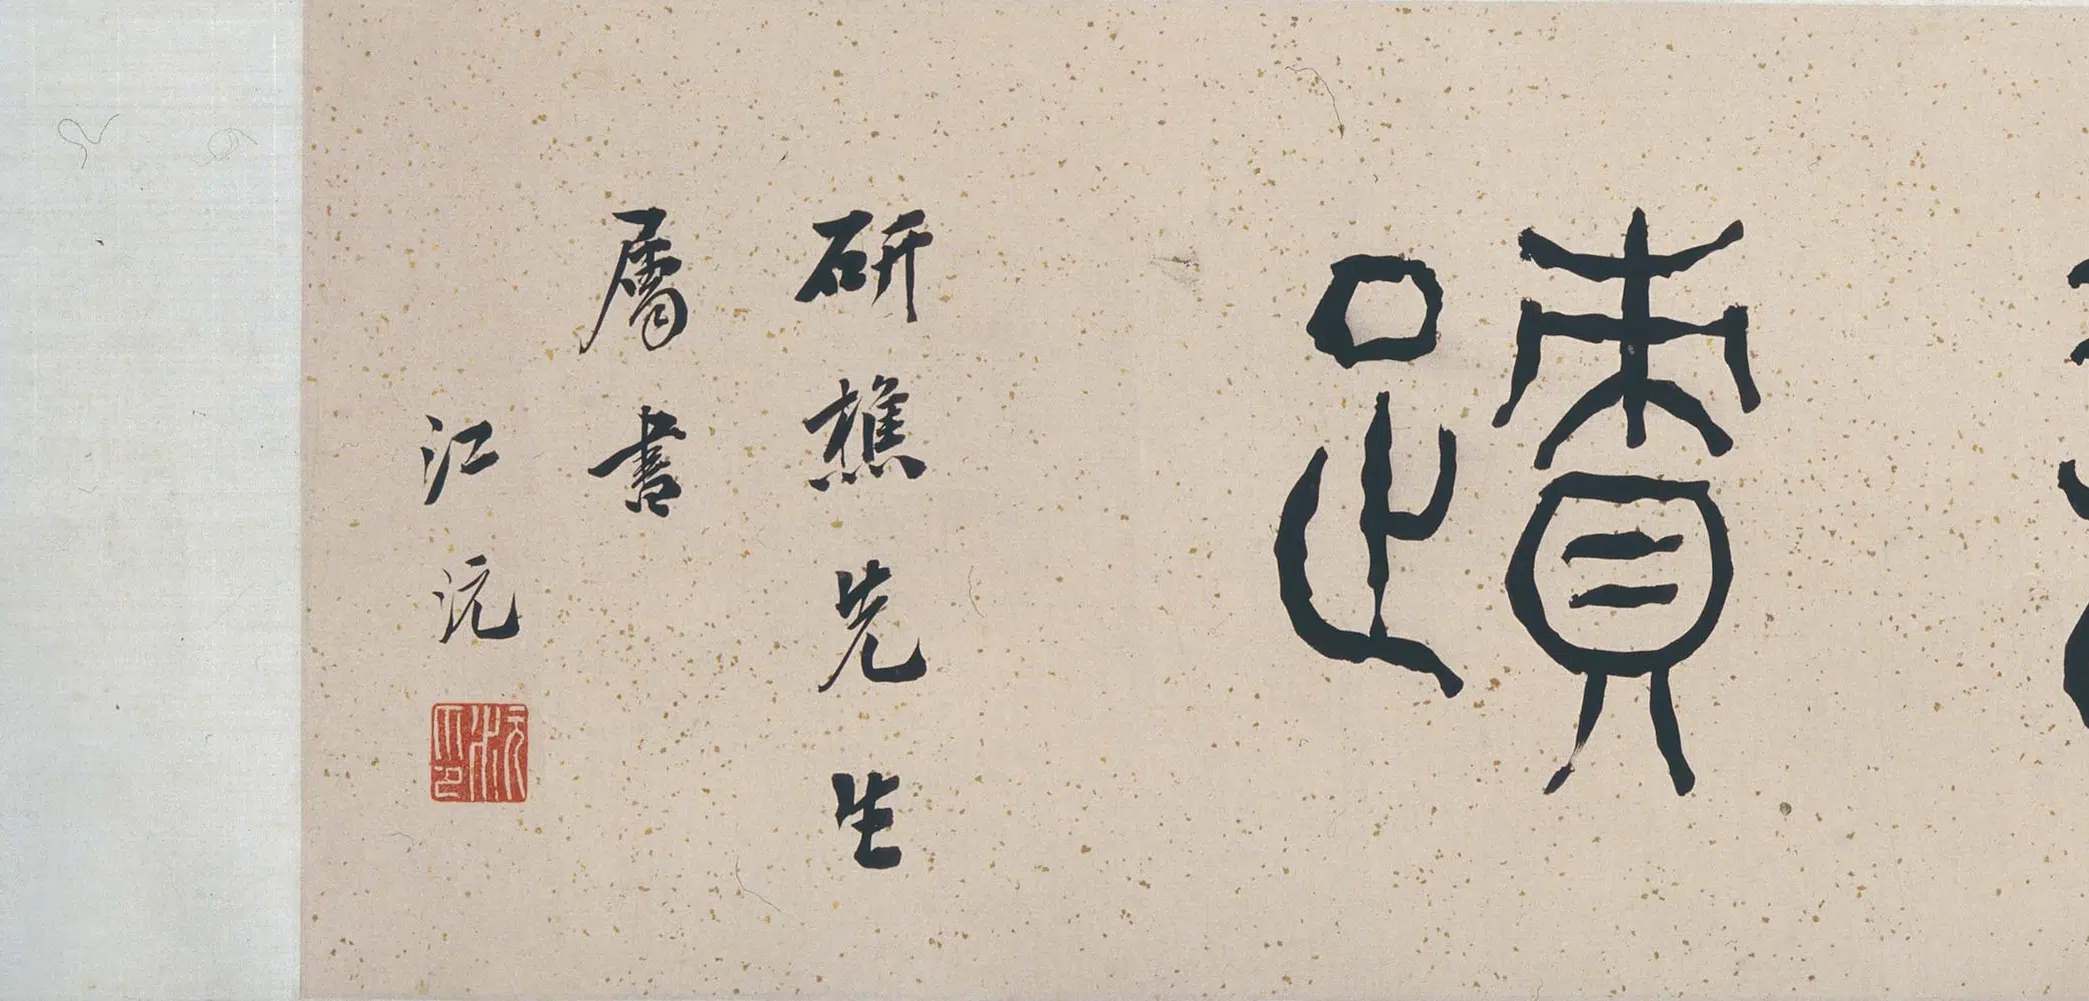 蹟
研樵先生
屬書
江沅